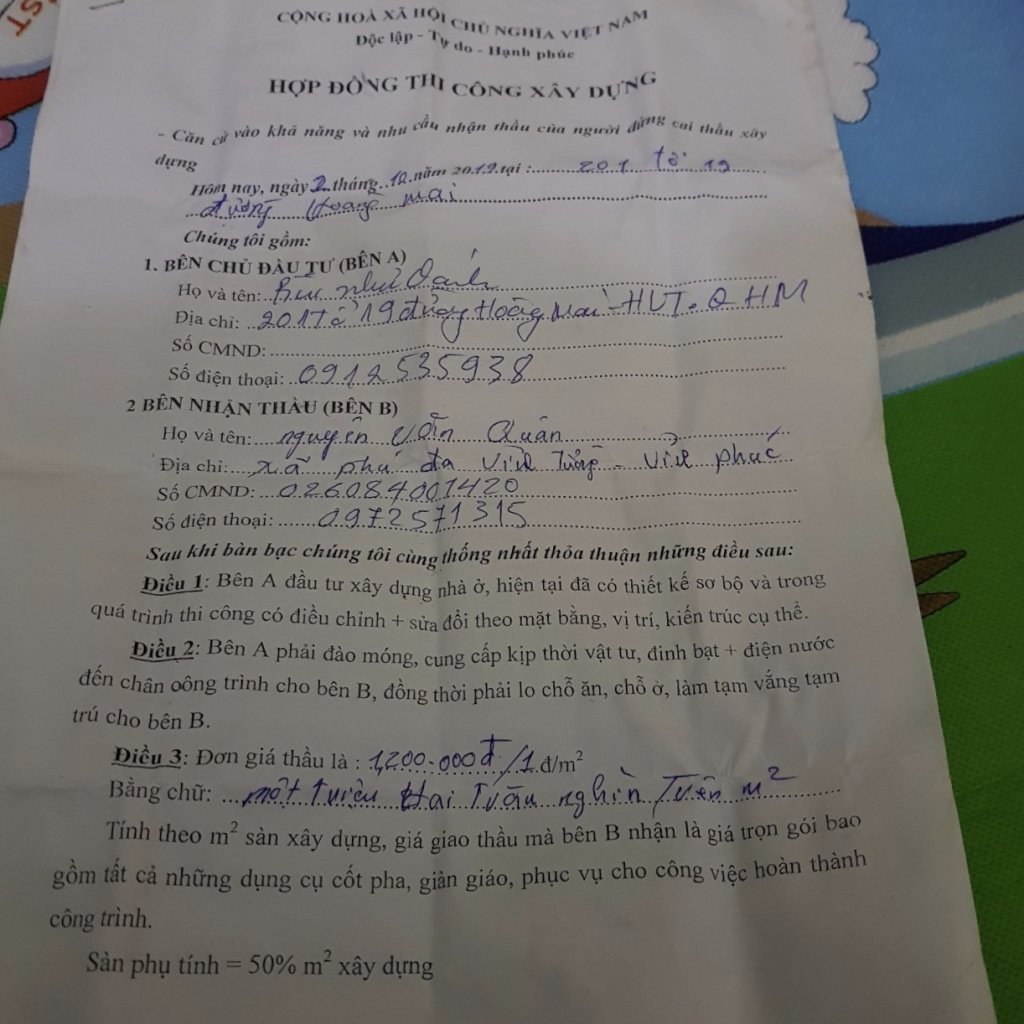 CỘNG HOÀ XÃ HỘI CHỦ NGHĨA VIỆT NAM
Độc lập - Tự do - Hạnh phúc
HỢP ĐỒNG THI CÔNG XÂY DỰNG
- Căn cứ vào khả năng và nhu cầu nhận thầu của người đứng cai thầu xây
dựng
Hôm nay, ngày 2 tháng 12 năm 2019 tại : 201 tổ 19
đường Hoàng mai
Chúng tôi gồm:
1. BÊN CHỦ ĐẦU TƯ (BÊN A)
Họ và tên: như
Địa chỉ: 201 Tổ 19 đường Hoàng Mai - HVT. Q HM
Số CMND:
Số điện thoại: 0912535938
2 BÊN NHẬN THẦU (BÊN B)
Họ và tên: nguyễn văn Quân
Địa chỉ: xã phú đa Vĩnh Tường - Vĩnh phúc
Số CMND: 026084001420
Số điện thoại: 0972571315
Sau khi bàn bạc chúng tôi cùng thống nhất thỏa thuận những điều sau:
Điều 1: Bên A đầu tư xây dựng nhà ở, hiện tại đã có thiết kế sơ bộ và trong
quá trình thi công có điều chỉnh + sửa đổi theo mặt bằng, vị trí, kiến trúc cụ thể.
Điều 2: Bên A phải đào móng, cung cấp kịp thời vật tư, đinh bạt + điện nước
đến chân oông trình cho bên B, đồng thời phải lo chỗ ăn, chỗ ở, làm tạm vắng tạm
trú cho bên B.
Điều 3: Đơn giá thầu là : 1,200.000đ/1 đ/m²
Bằng chữ: một Triệu Hai Trăm nghìn Trên m²
Tính theo m² sàn xây dựng, giá giao thầu mà bên B nhận là giá trọn gói bao
gồm tất cả những dụng cụ cốt pha, giàn giáo, phục vụ cho công việc hoàn thành
công trình.
Sàn phụ tính = 50% m² xây dựng